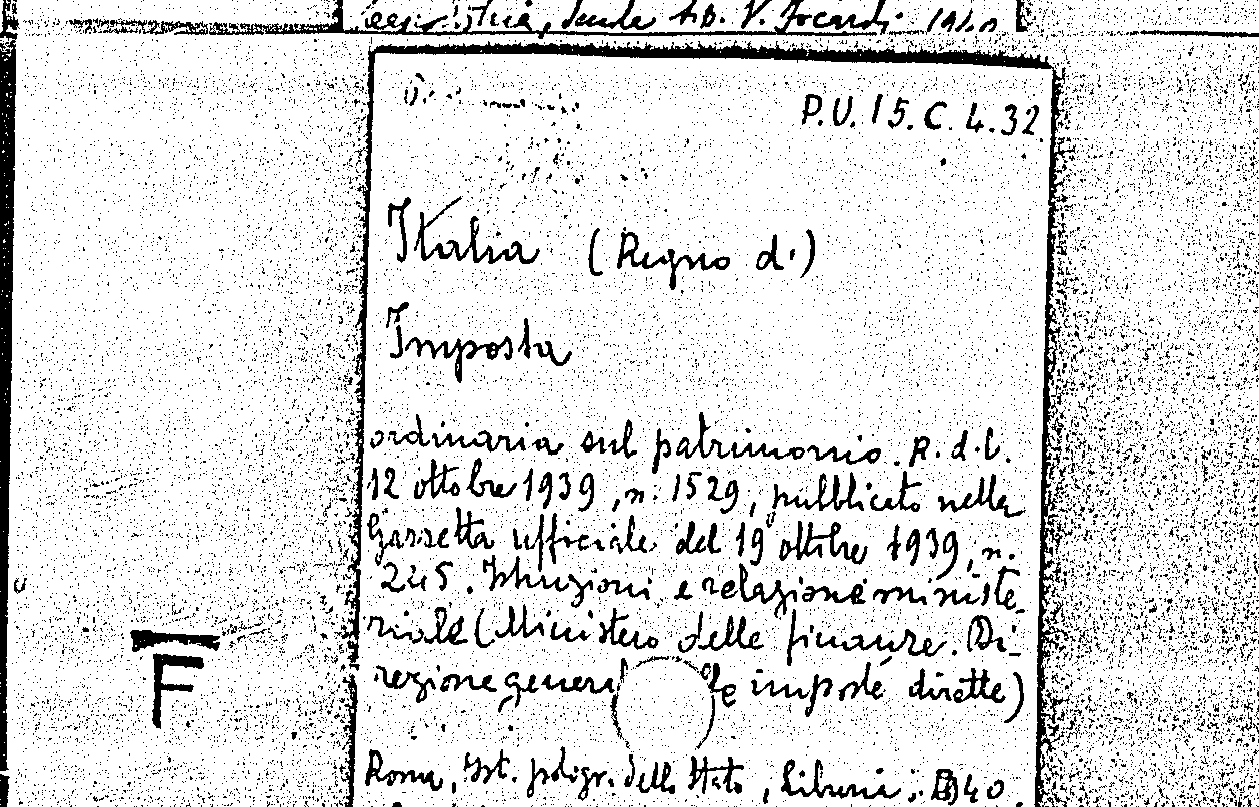 V. Focardi 1940
P.U. 15. C. 4. 32.
Italia (Regno d')
Imposta
ordinaria sul patrimonio. R. d. l.
12 ottobre 1939, n. 1529, pubblicato nella
Gazzetta ufficiale del 19 ottobre 1939, n.
245. Istruzioni e relazione ministe-
riale (Ministero delle finanze. Di-
rezione general le imposte dirette)
Roma, Ist. poligr. dello Stato, Libreria, 1940
F